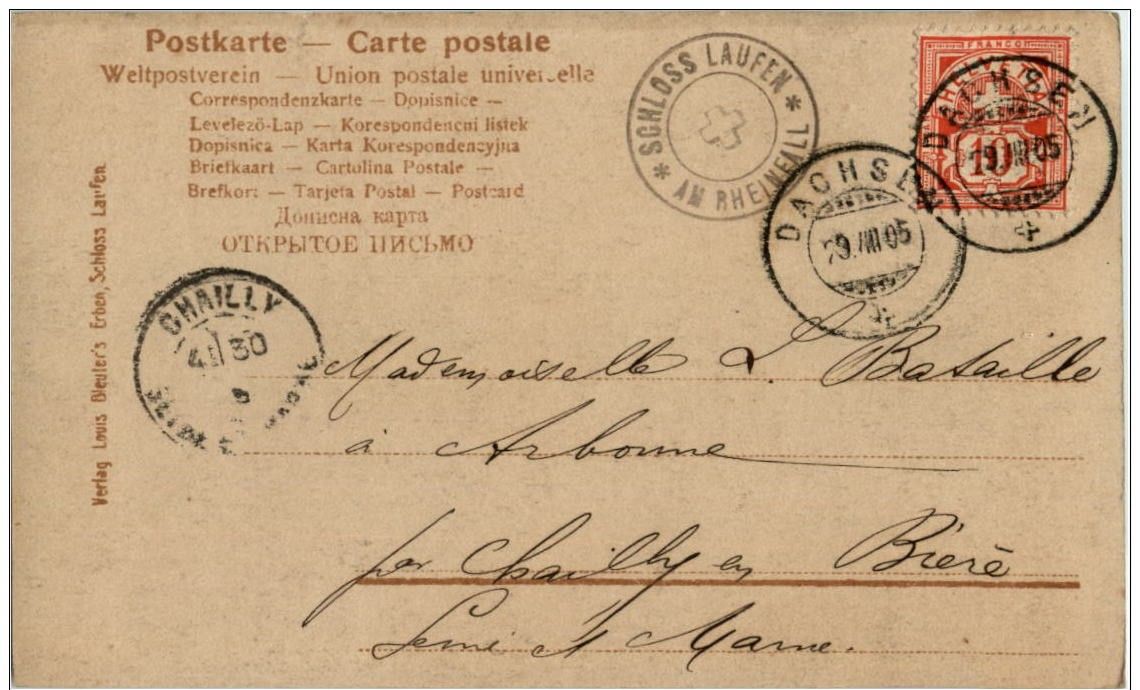 Postkarte — Carte postale
Weltpostverein — Union postale universelle
Correspondenzkarte — Dopisnice —
Levelező-Lap — Korespondencni listek
Dopisnica — Karta Korespondencyjna
Briefkaart — Cartolina Postale —
Brefkort — Tarjeta Postal — Postcard
Дописна карта
ОТКРЫТОЕ ПИСЬМО
SCHLOSS LAUFEN
* AM RHEINFALL *
FRANCO
HELVETIA
10
DACHSEN
29.VIII.05
DACHSEN
29.VIII.05
CHAILLY
30
Verlag Louis Bleuler's Erben, Schloss Laufen.
Mademoiselle L. Bataille
à Arbonne
par Chailly en Bière
Seine et Marne.